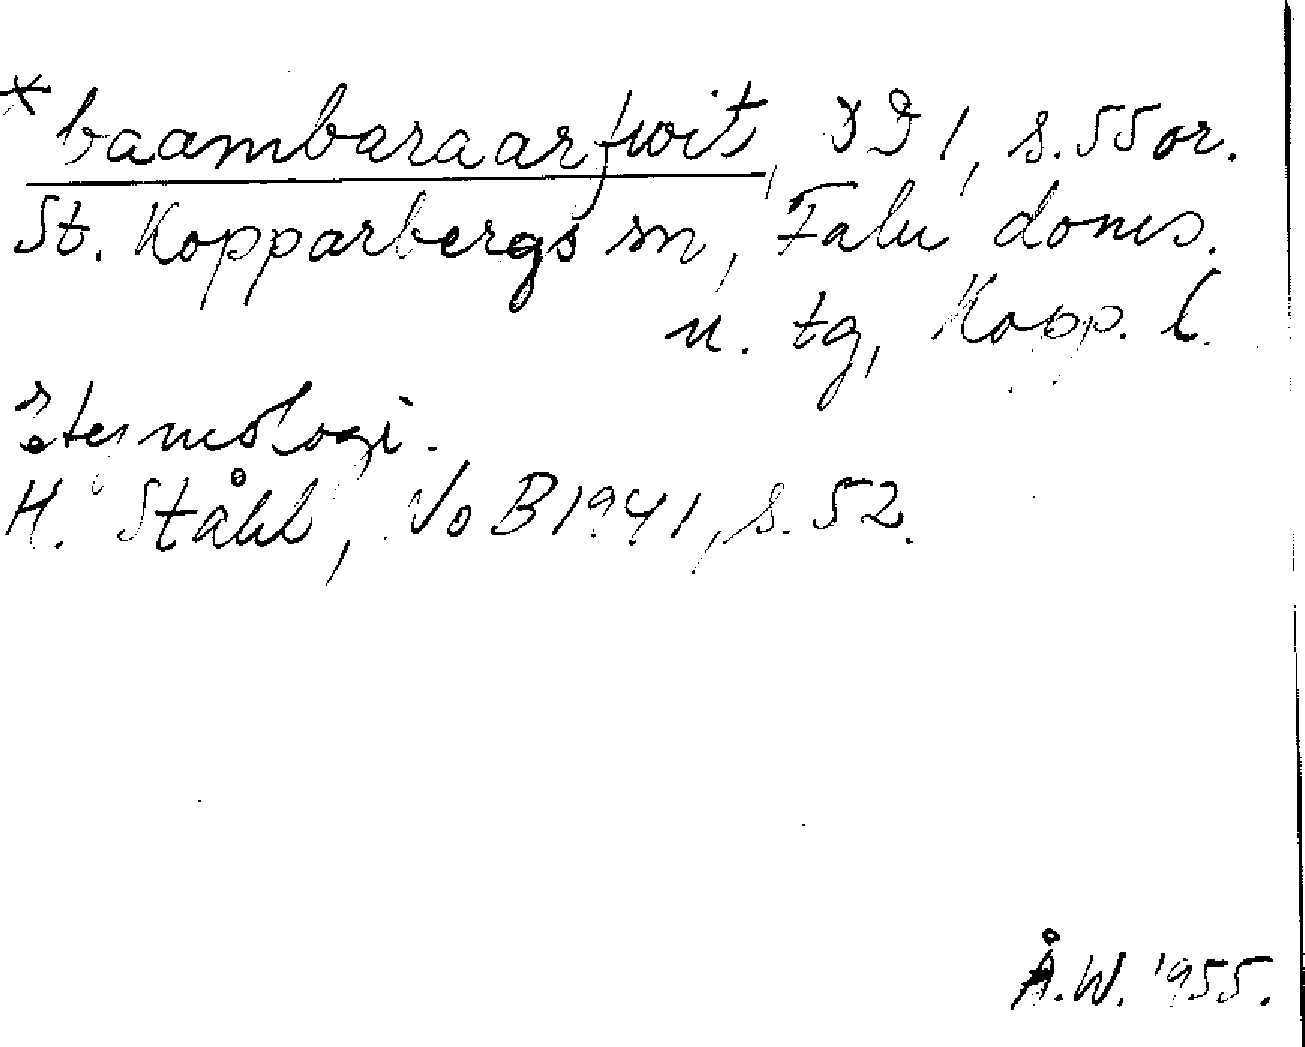 * baambaraarfwit, DD 1, s. 55 or.
St. Kopparbergs sn, Falu doms.
n. tg, Kopp. l.
Etymologi.
H. Ståhl, NoB 1941, s. 52.
Å.W. 1955.